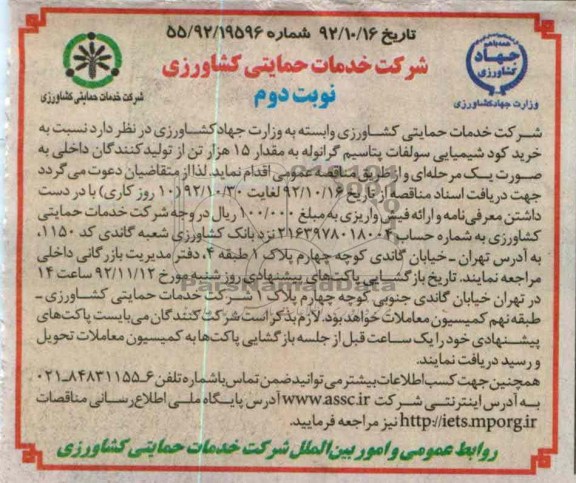 تاریخ ۹۲/۱۰/۱۶ شماره ۵۵/۹۲/۱۹۵۹۶
شرکت خدمات حمایتی کشاورزی
نوبت دوم
همه با هم
جهاد
کشاورزی
وزارت جهاد کشاورزی
شرکت خدمات حمایتی کشاورزی
شرکت خدمات حمایتی کشاورزی وابسته به وزارت جهاد کشاورزی در نظر دارد نسبت به
خرید کود شیمیایی سولفات پتاسیم گرانوله به مقدار ۱۵ هزار تن از تولیدکنندگان داخلی به
صورت یک مرحله‌ای و از طریق مناقصه عمومی اقدام نماید. لذا از متقاضیان دعوت می‌گردد
جهت دریافت اسناد مناقصه از تاریخ ۹۲/۱۰/۱۶ لغایت ۹۲/۱۰/۳۰ (۱۰ روز کاری) با در دست
داشتن معرفی‌نامه و ارائه فیش واریزی به مبلغ ۱۰۰/۰۰۰ ریال در وجه شرکت خدمات حمایتی
کشاورزی به شماره حساب ۲۱۶۳۹۷۸۰۱۸۰۰۴ نزد بانک کشاورزی شعبه گاندی کد ۱۱۵۰،
به آدرس تهران ـ خیابان گاندی کوچه چهارم پلاک ۱ طبقه ۴، دفتر مدیریت بازرگانی داخلی
مراجعه نمایند. تاریخ بازگشایی پاکت‌های پیشنهادی روز شنبه مورخ ۹۲/۱۱/۱۲ ساعت ۱۴
در تهران خیابان گاندی جنوبی کوچه چهارم پلاک ۱ شرکت خدمات حمایتی کشاورزی ـ
طبقه نهم کمیسیون معاملات خواهد بود. لازم بذکر است شرکت کنندگان می‌بایست پاکت‌های
پیشنهادی خود را یک ساعت قبل از جلسه بازگشایی پاکت‌ها به کمیسیون معاملات تحویل
و رسید دریافت نمایند.
همچنین جهت کسب اطلاعات بیشتر می‌توانید ضمن تماس با شماره تلفن ۶ـ۸۴۸۳۱۱۵۵ـ۰۲۱
به آدرس اینترنتی شرکت www.assc.ir آدرس پایگاه ملی اطلاع رسانی مناقصات
http://iets.mporg.ir نیز مراجعه فرمایید.
روابط عمومی و امور بین الملل شرکت خدمات حمایتی کشاورزی
ParsNamadData